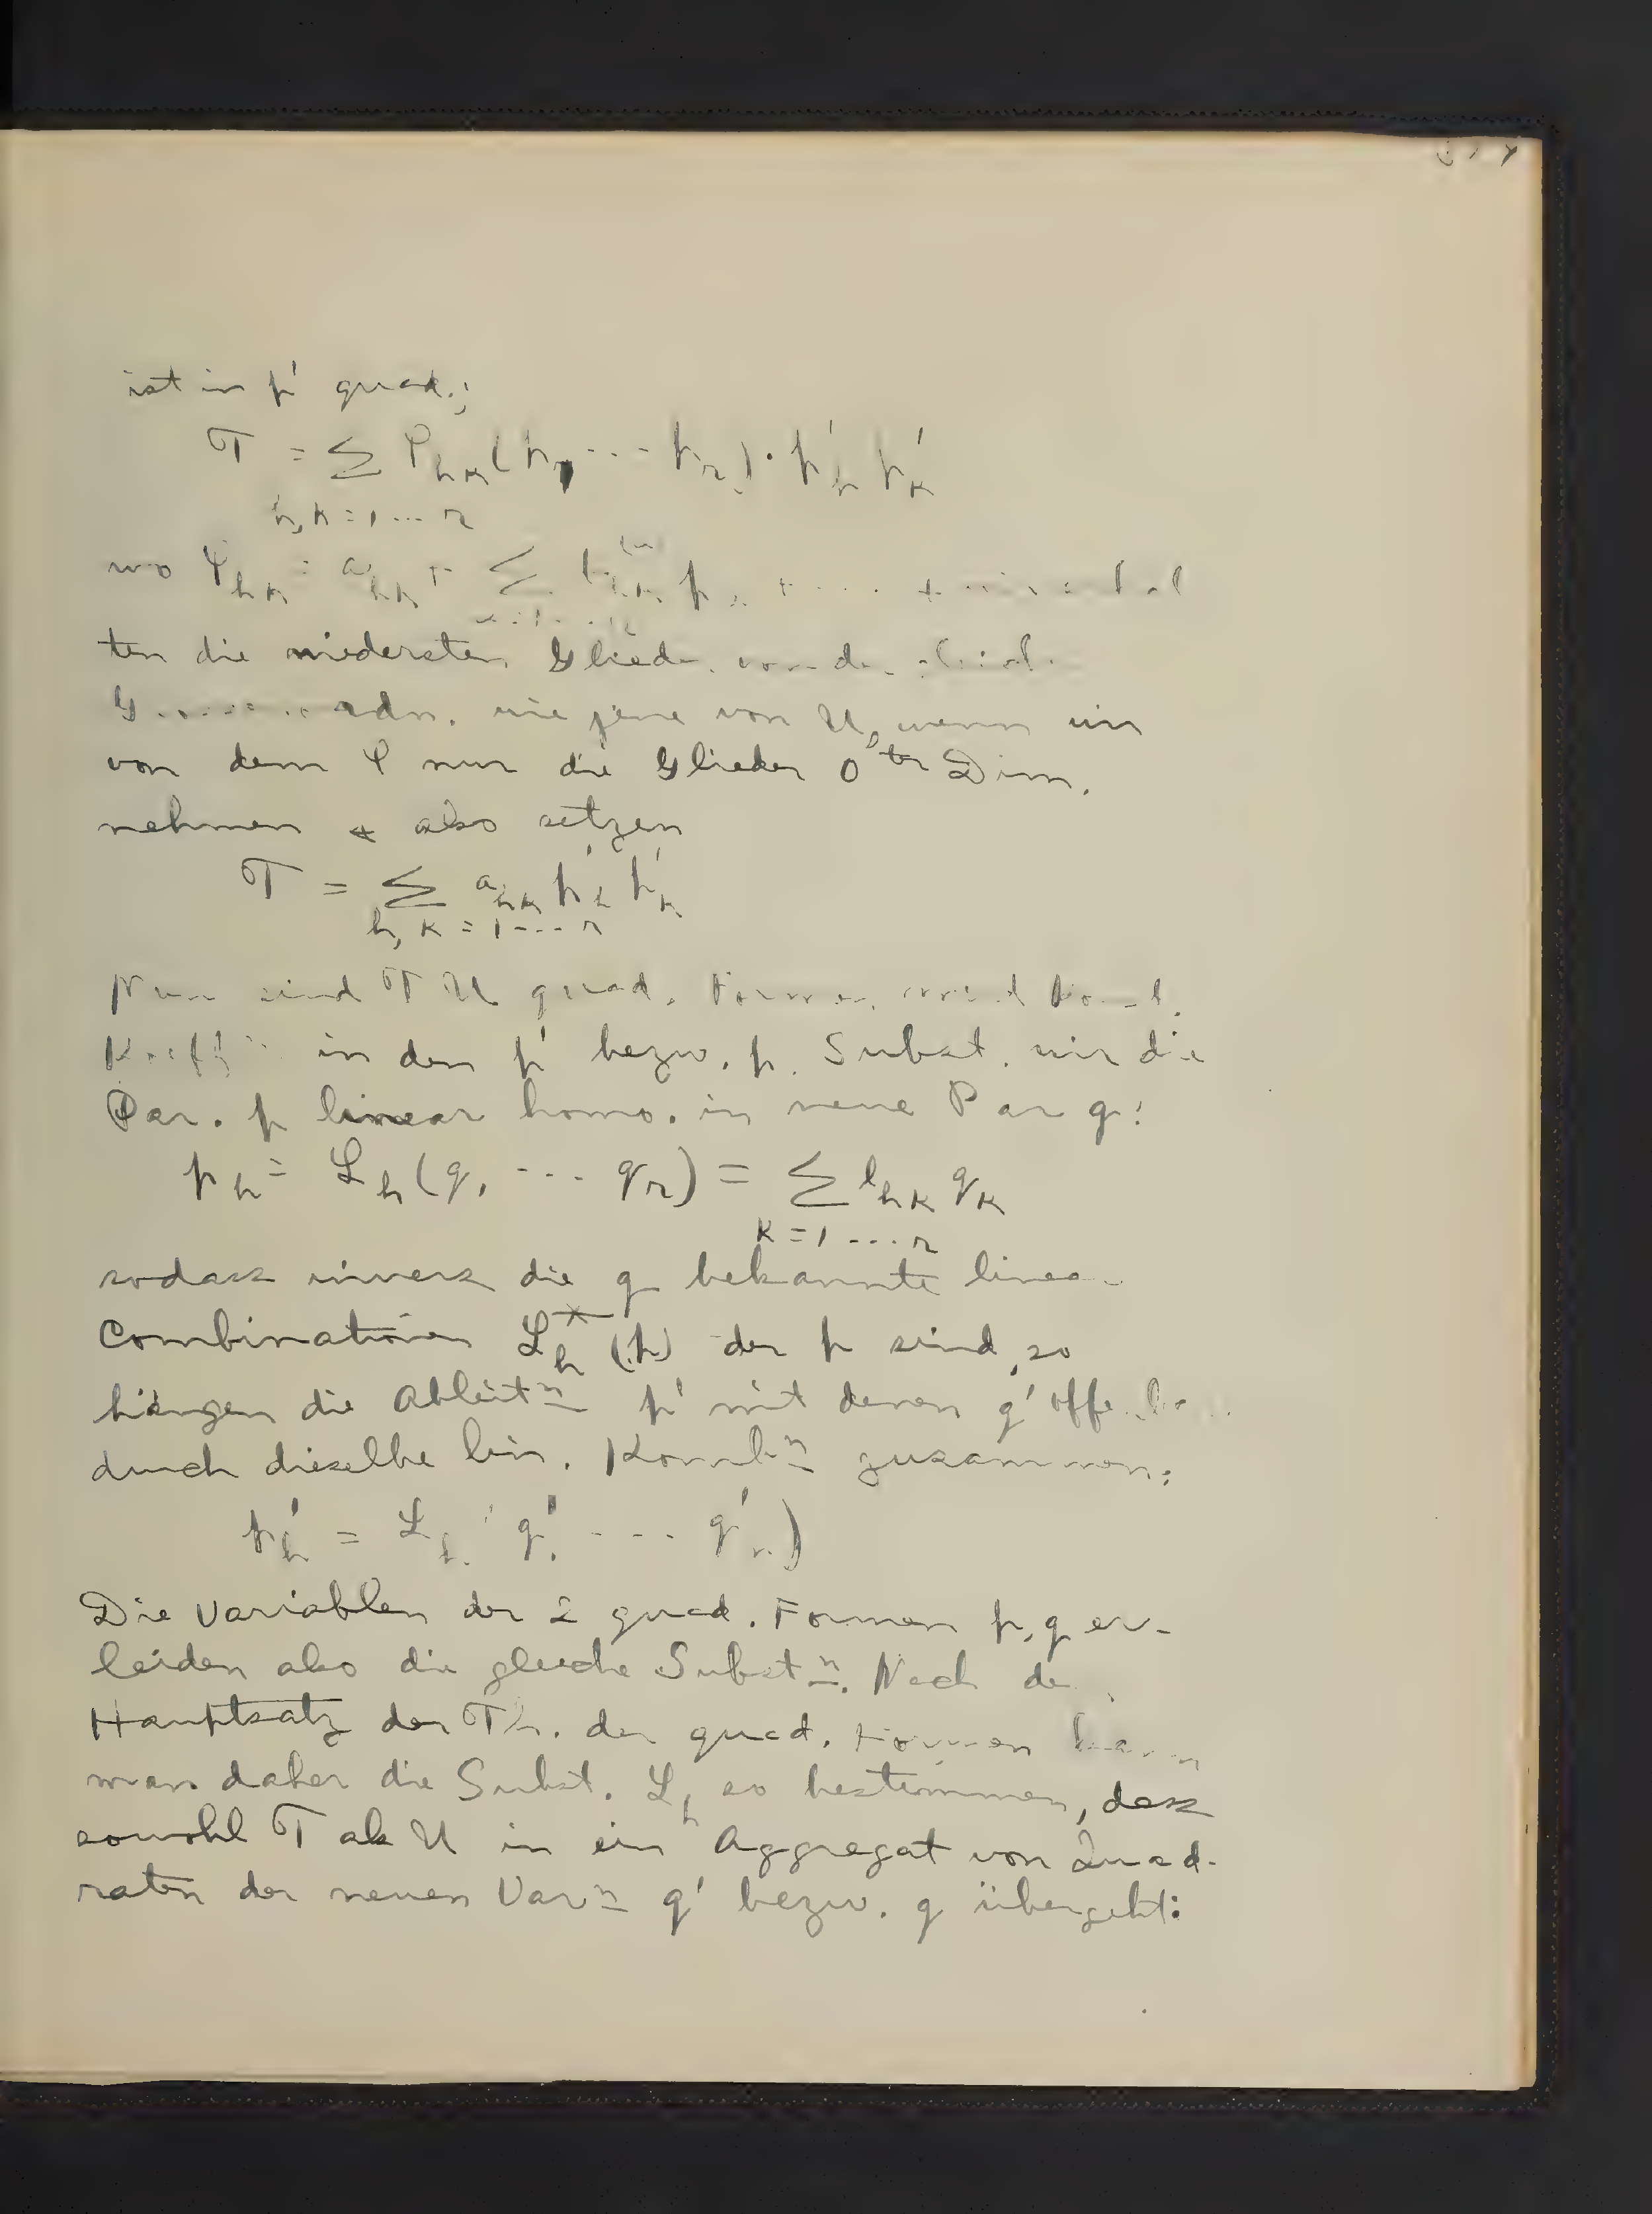 ist in p' quad.;
T = ∑ φhk(p1 ... pr) · p'h p'k
h, k = 1 ... r
wo φhk = ahk + ∑ phk p
ten die niedersten Glieder von der
Grössenordn. wie jene von U, wenn wir
von dem φ nur die Glieder 0ter Dim.
nehmen + also setzen
T = ∑ ahk p'h p'k
h, k = 1 ... r
Nun sind T U quad. Formen mit konst.
Koeffn in den p' bezw. p. Subst. wir die
Par. p linear homo. in neue Par q:
ph = Lh(q1 ... qr) = ∑ lhk qk
k = 1 ... r
sodass invers die q bekannte linea
Combinationen L*h(p) der p sind, so
hängen die Ableitn p' mit denen q' offenba
durch dieselbe lin. Kombn zusammen:
p'h = Lh(q'1 ... q'r)
Die Variablen der 2 quad. Formen p, q er-
leiden also die gleiche Substn. Nach de
Hauptsatz der Th. der quad. Formen kann
man daher die Subst. Lh so bestimmen, dass
sowohl T als U in ein Aggregat von Quad-
raten der neuen Varn q' bezw. q übergeht: